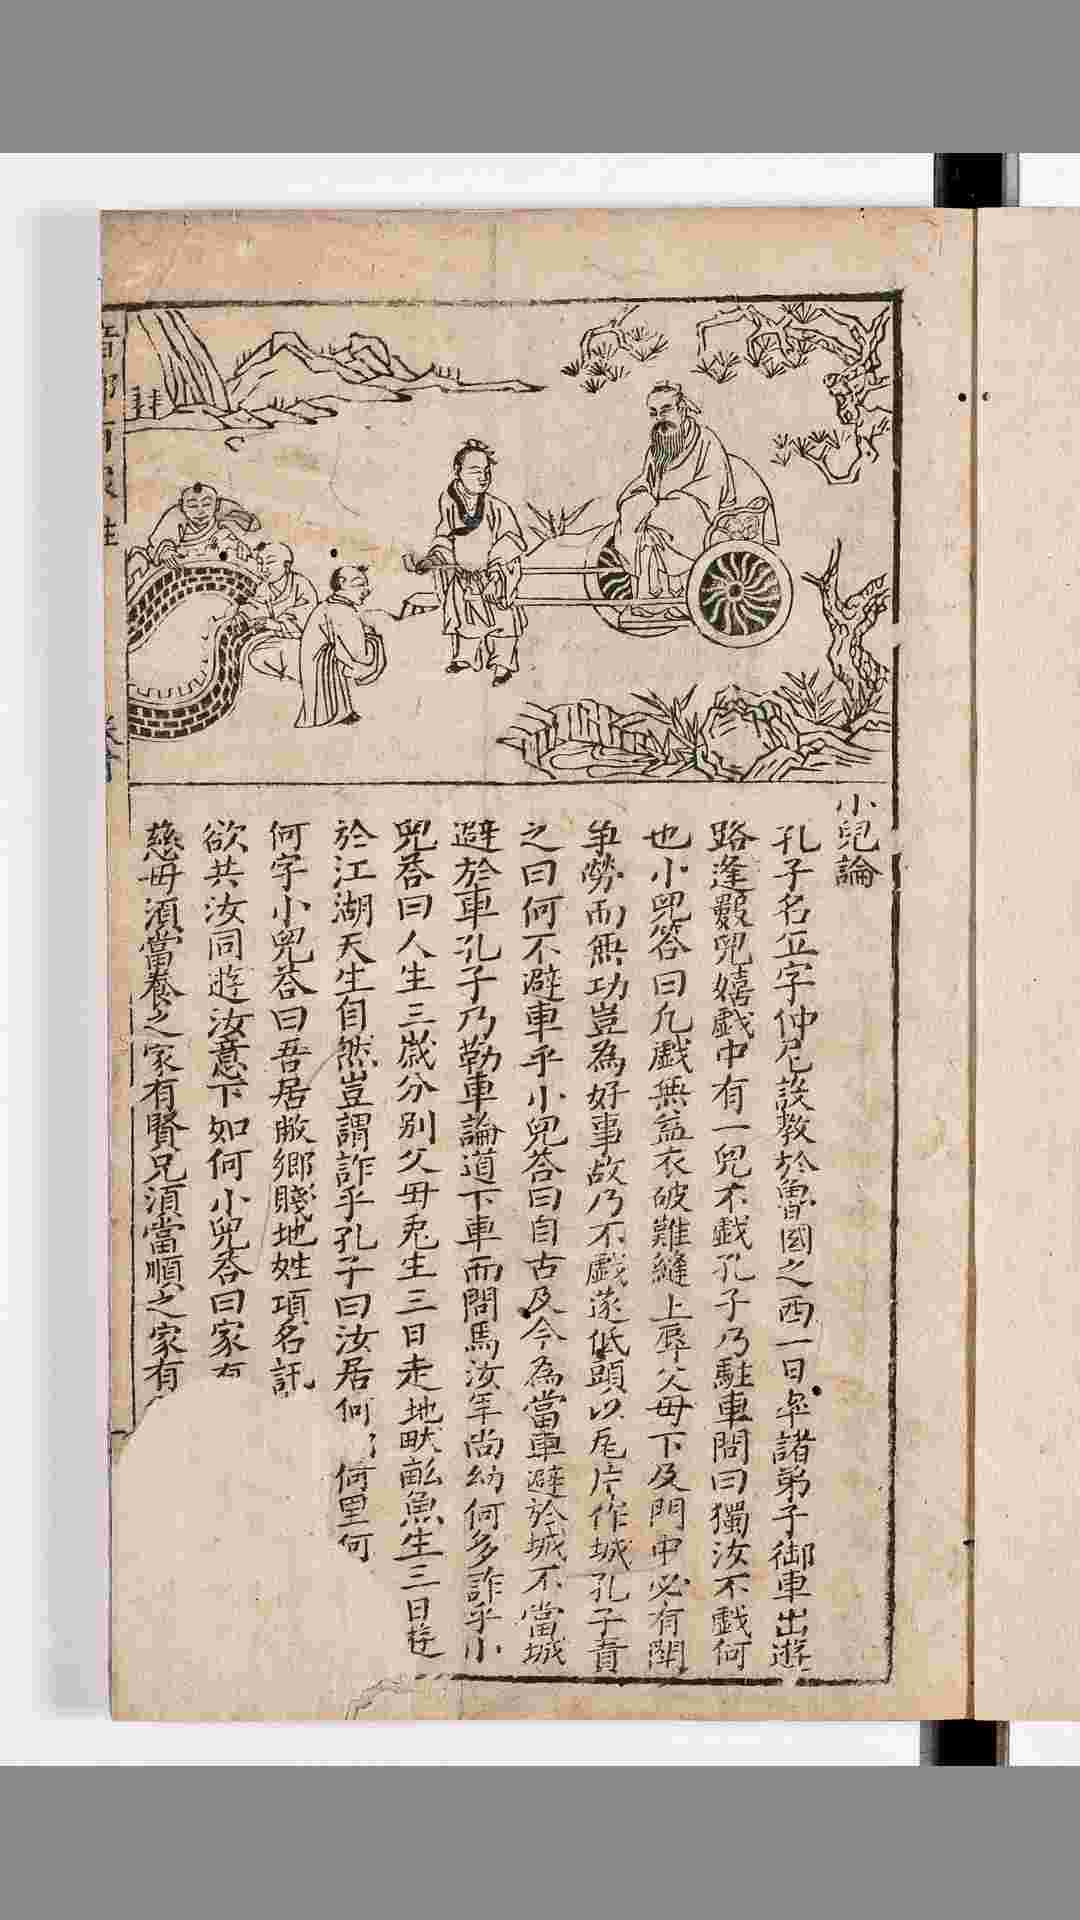 小兒論
孔子名丘字仲尼設教於魯國之西一日率諸弟子御車出遊
路逢數兒嬉戲中有一兒不戲孔子乃駐車問曰獨汝不戲何
也小兒答曰凡戲無益衣破難縫上辱父母下及門中必有鬪
争勞而無功豈為好事故乃不戲遂低頭以瓦片作城孔子責
之曰何不避車乎小兒荅曰自古及今為當車避於城不當城
避於車孔子乃勒車論道下車而問焉汝年尚幼何多詐乎小
兒荅曰人生三歲分別父母兎生三日走地畎畝魚生三日遊
於江湖天生自然豈謂詐乎孔子曰汝居何 何里何
何字小兒荅曰吾居敝鄉賤地姓項名託
欲共汝同遊汝意下如何小兒荅曰家有
慈母須當養之家有賢兄須當順之家有